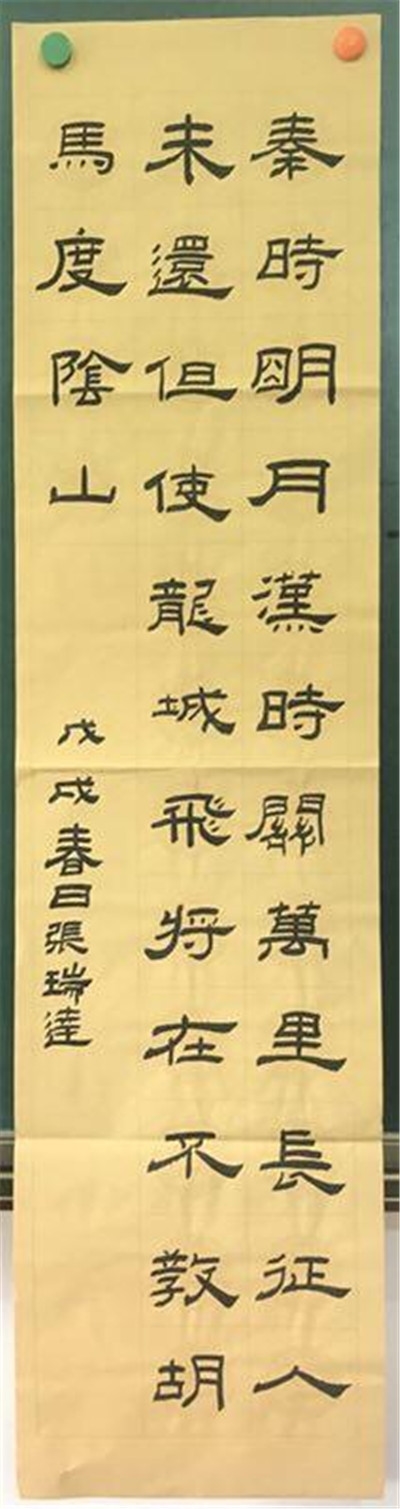 秦時明月漢時關萬里長征人
未還但使龍城飛将在不教胡
馬度陰山
戊戌春日張瑞達